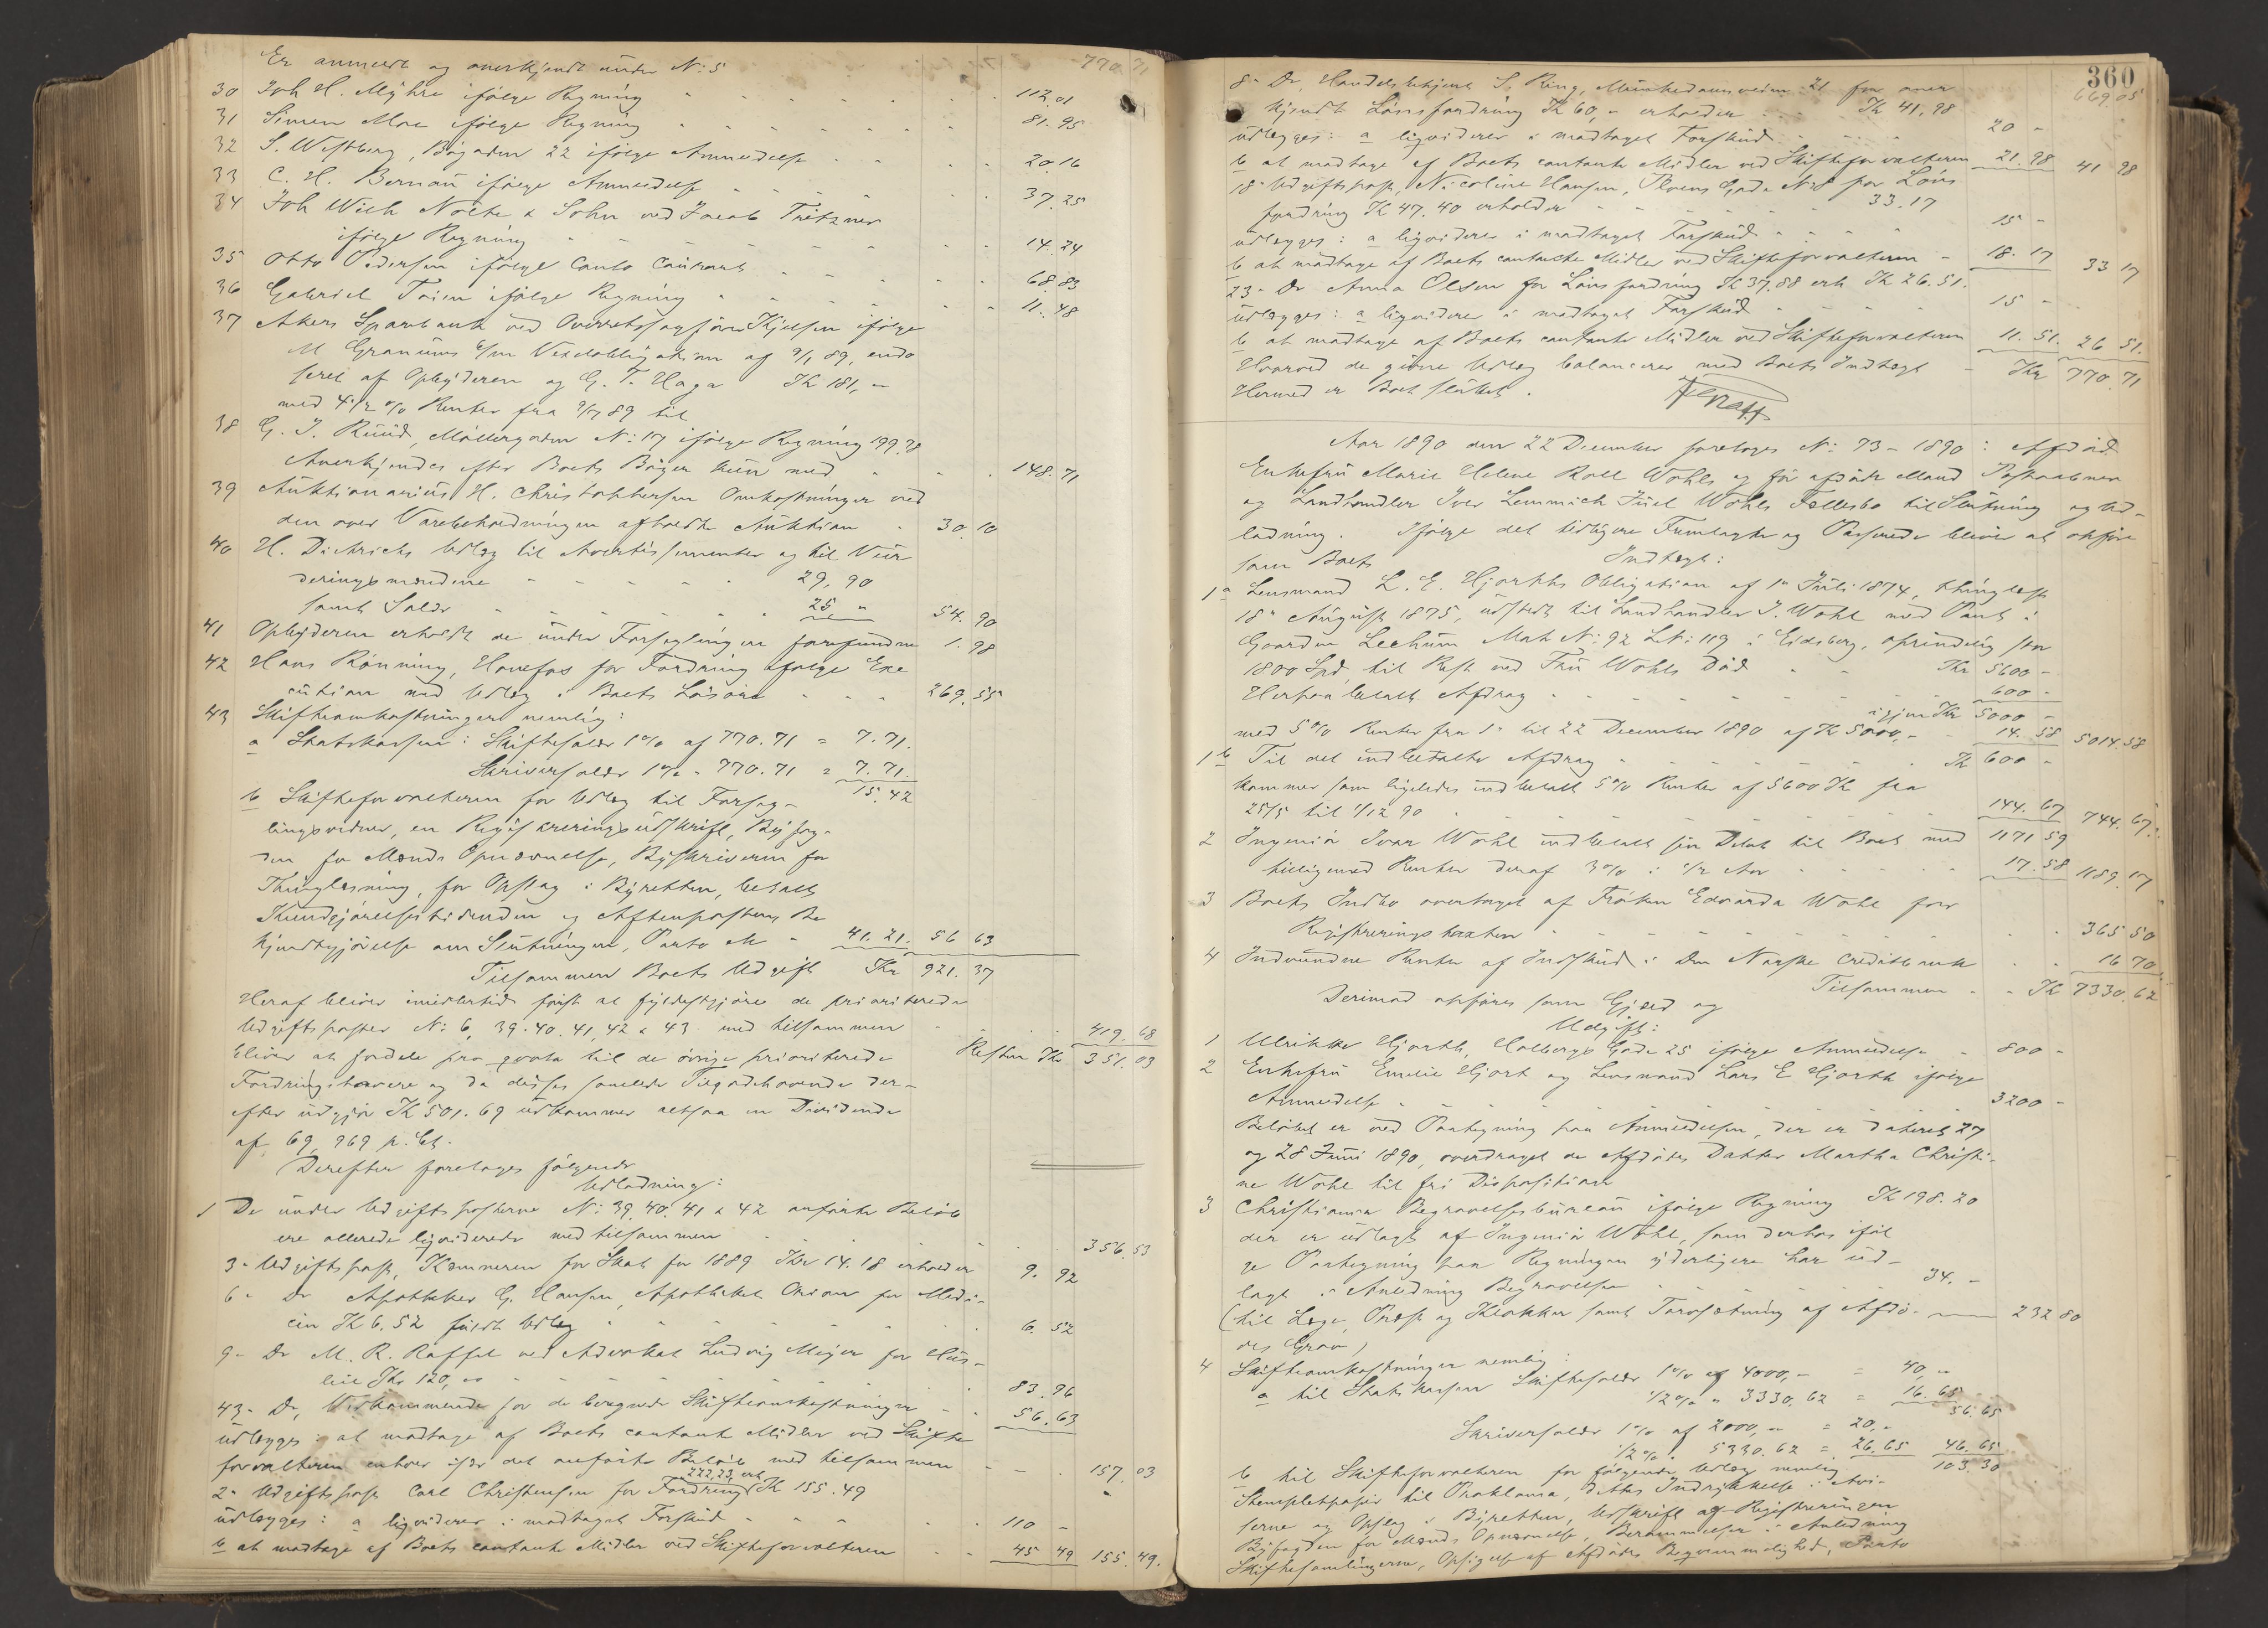 Er anmeldt og anerkjendt under No: 5 770.71
30 Joh H. Myhre ifølge Regning 112.01
31 Simen Moe ifølge Regning 81.95
32 S. Westberg, Bygaden 22 ifølge Anmeldelse 20.16
33 C. H. Bernau ifølge Anmeldelse 37.25
34 Joh Wilh Nolte & Sohn ved Jacob Tretzner
ifølge Regning 14.24
35 Otto Pedersen ifølge Conto Courant 68.83
36 Gabriel Toien ifølge Regning 11.48
37 Akers Sparebank ved Overretssagfører Kjelsen ifølge
M Granums Vexelobligation af 9/1 89, endo
seret af Opbyderen og G. T. Haga Kr 181,-
med 4 1/2 % Renter fra 9/7 89 til
38 G. J. Ruud, Møllergaden No: 17 ifølge Regning 199.78
Anerkjendes efter Boets Bøger kun med 148.71
39 Auktionarius H. Christophersen Omkostninger ved
den over Varebeholdningen afholdte Auktion 30.10
40 H. Dietrichs Udlæg til Avertissementer og til Vur
deringsmændene 29,90
samt Salær 25,- 54.90
41 Opbyderen erholdt de under Forseglingen forefundne 1.98
42 Hans Rønning, Hønefos for Fordring ifølge Exe
cution med Udlæg i Boets Løsøre 269.55
43 Skifteomkostninger nemlig:
a Statskassen: Skiftesalær 1% af 770.71 = 7.71.
Skriversalær 1% " 770.71 = 7.71.
15.42
b Skifteforvalteren for Udlæg til Forseg-
lingsvidner, en Registreringsudskrift, Byfog-
den for Mænds Opnævnelse, Byskriveren for
Thinglæsning, for Opslag i Byretten, betalt
Kundgjørelsestidenden og Aftenposten Be
kjendtgjørelse om Slutningen, Porto etc 41.21. 56 63
Tilsammen Boets Udgift Kr 921.37
Heraf bliver imidlertid først at fyldestgjøre de prioriterede
Udgiftsposter No: 6, 39.40.41,42 & 43 med tilsammen 419.68
Resten Kr 351.03
bliver at fordele pro qvota til de øvrige prioriterede
Fordringshavere og da disses samlede Tilgodehavende der-
efter udgjør Kr 501.69 udkommer altsaa en Dividende
af 69,969 p. Ct.
Derefter foretoges følgende
Udlodning:
1 De under Udgiftsposterne No: 39.40.41 & 42 anførte Beløb
ere allerede ligviderede med tilsammen 356.53
3- Udgiftspost, Kæmneren for Skat for 1889 Kr 14.18 erholder 9.92
6- Do Apotheker G. Hansen, Apotheket Orion for Medi-
cin Kr 6.52 fuldt Udlæg 6.52
9- Do M. R. Raffel ved Advokat Ludvig Meyer for Hus-
leie Kr 120,00 83.96
43- Do, Vedkommende for de beregnede Skifteomkostninger 56.63
udlægges: at modtage af Boets contante Midler ved Skifte
forvalteren enhver især det anførte Beløb med tilsammen 157.03
2- Udgiftspost Carl Christensen for Fordring 222,23, erh Kr 155.49
udlægges: a ligviderer i modtaget Forskud 110 -
b at modtage af Boets contante Midler ved Skifteforvalteren 45 49 155.49.
360
669.05
8- Do, Handelsbetjent S. Ring, Munkedamsveien 21 for aner
kjendt Lønsfordring Kr 60,- erholder Kr 41,98
udlægges: a ligviderer i modtaget Forskud 20 -
b at modtage af Boets contante Midler ved Skifteforvalteren 21.98 41 98
18- Udgiftspost, Nicoline Hansen, Thorens Gade No: 8 for Løns
fordring Kr 47.40 erholder 33.17
udlægges: a ligviderer i modtaget Forskud 15 -
b at modtage af Boets contante Midler ved Skifteforvalteren 18.17 33 17
23- Do Anna Olsen for Lønsfordring Kr 37,88 erh Kr 26.51.
udlægges: a ligviderer i modtaget Forskud 15 -
b at modtage af Boets contante Midler ved Skifteforvalteren 11.51. 26 51.
Hvorved de givne Udlæg balancerer med Boets Indtægt Kr 770.71
Hermed er Boet sluttet.
Aar 1890 den 22 December foretoges No: 73-1890: Afdød
Enkefru Marie Helene Roll Wohls og før afdøde Mand Postaabner
og Landhandler Iver Lemmich Juel Wohls Fællesbo til Slutning og Ud-
lodning. Ifølge det tidligere Fremlagte og Passerede bliver at opføre
som Boets Indtægt:
1a Lensmand L. E. Hjorths Obligation af 1- Juli 1874, thinglæst
18- August 1875, udstedt til Landhandler J. Wohl med Pant i
Gaarden Lechum Mat No: 92 LNo: 119 i Eidsberg, oprindelig stor
1800 Spd, til Rest ved Fru Wohls Død Kr 5600 -
Herpaa betalt Afdrag 600 -
igjen Kr 5000 -
med 5% Renter fra 1- til 22 December 1890 af Kr 5000,- 14.58 5014.58
1b Til det indbetalte Afdrag Kr 600 -
kommer som ligeledes indbetalt 5% Renter af 5600 Kr fra
25/5 til 1/12 90 144.67 744.67.
2 Ingeniør Ivar Wohl indbetalt sin Debet til Boet med 1171 59
tilligemed Renter deraf 3% i 1/2 Aar 17.58 1189.17
3 Boets Indbo overtaget af Frøken Edvarda Wohl for
Registreringstaxten 365 50
4 Indvundne Renter af Indskud i Den Norske Creditbank 16 70
Tilsammen Kr 7330.62
Derimod opføres som Gjeld og
Udgift:
1 Ulrikke Hjorth, Holbergs Gade 25 ifølge Anmeldelse 800 -
2 Enkefru Emilie Hjort og Lensmand Lars E Hjorth ifølge
Anmeldelse 3200 -
Beløbet er ved Paategning paa Anmeldelsen, der er dateret 27
og 28 Juni 1890, overdraget de Afdødes Datter Martha Christi-
ne Wohl til fri Disposition
3 Christiania Begravelsesbureau ifølge Regning Kr 198.20
der er udlagt af Ingeniør Wohl, som derhos iføl
ge Paategning paa Regningen yderligere har ud-
lagt i Anledning Begravelsen 34.-
(til Læge, Præst og Klokker samt Torvsætning af Afdø- 232 80
des Grav)
4 Skifteomkostninger nemlig:
a til Statskassen Skiftesalær 1% af 4000,- = 40,-
1/2% " 3330,62 = 16.65
56.65
Skriversalær 1% af 2000,- = 20,-
1/2% " 5330.62 = 26.65 46.65
103.30
b til Skifteforvalteren for følgende Udlæg nemlig
Stempletpapir til Proklama, dettes Indrykkelse i Avi-
serne og Opslag i Byretten, Udskrift af Registreringen
Byfogden for Mænds Opnævnelse, Berammelser i Anledning
Skiftesamlingerne, Opsigelse af Afdødes Beqvemmelighed, Porto